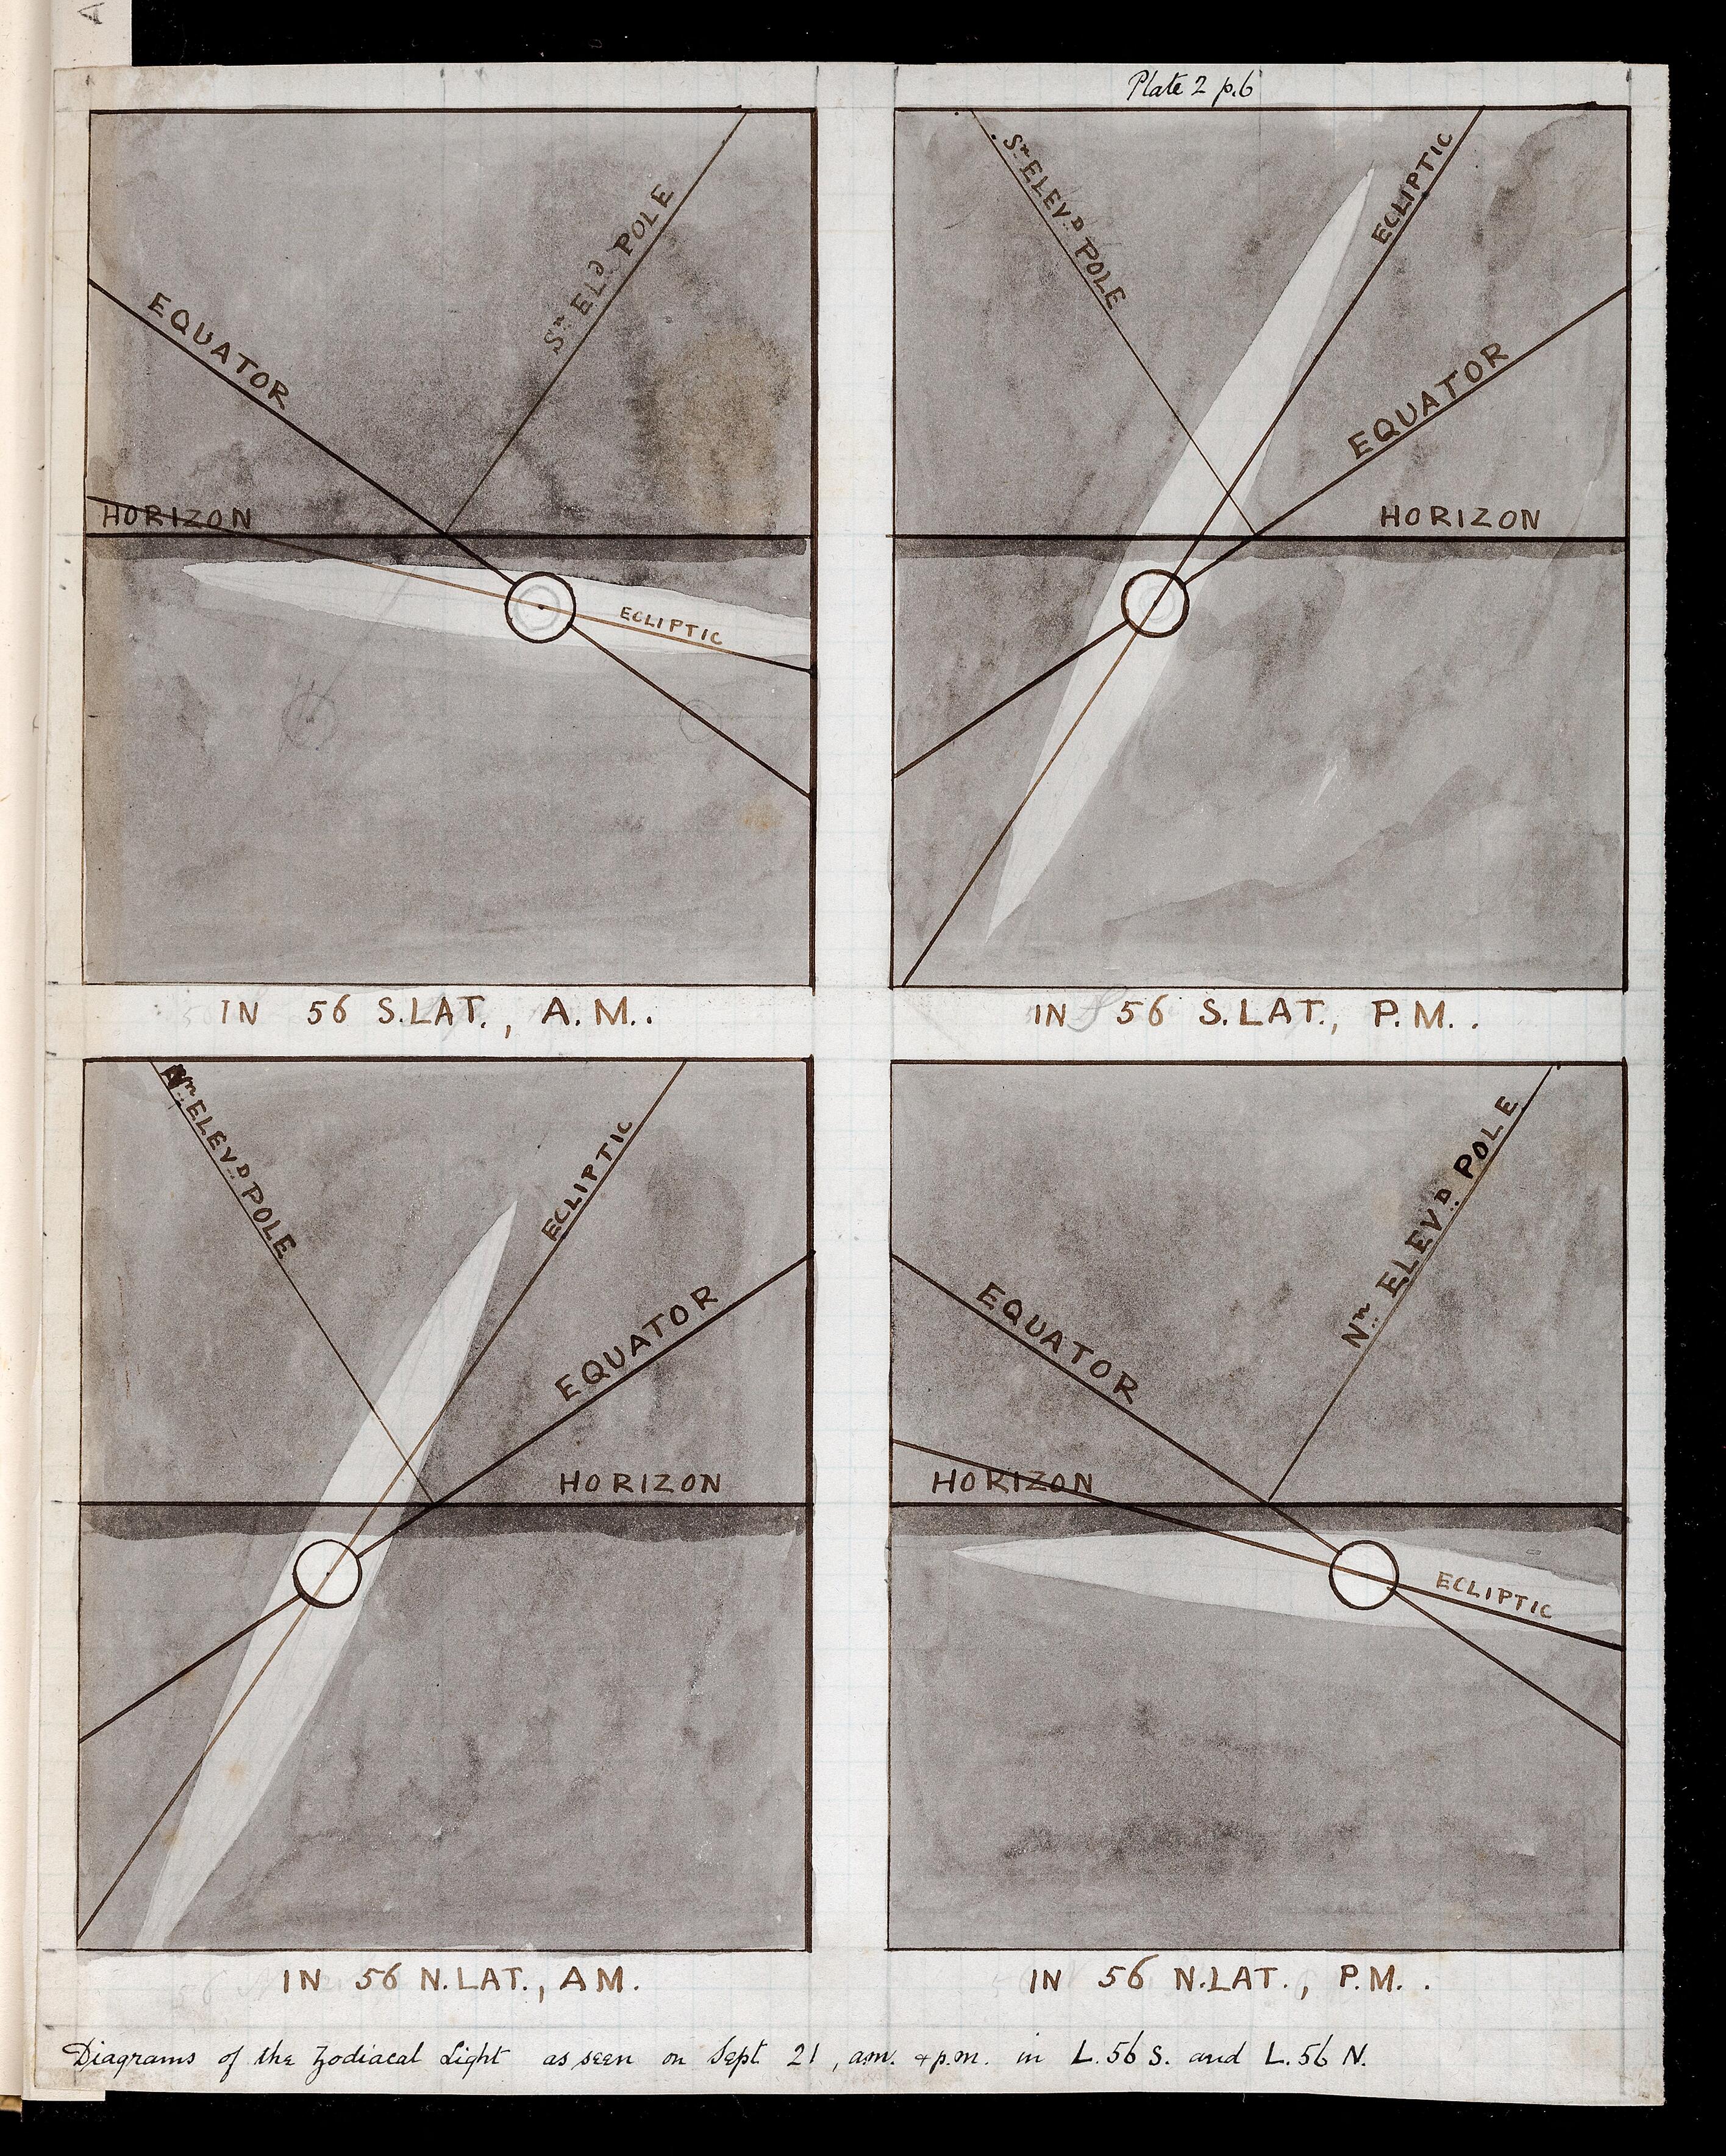 A
Plate 2 p.6
EQUATOR
Sⁿ ELᴰ POLE
HORIZON
ECLIPTIC
IN 56 S.LAT., A.M..
Sⁿ ELEVᴰ POLE
ECLIPTIC
EQUATOR
HORIZON
IN 56 S.LAT., P.M..
Nⁿ ELEVᴰ POLE
ECLIPTIC
EQUATOR
HORIZON
IN 56 N.LAT., AM.
EQUATOR
Nⁿ ELEVᴰ POLE
HORIZON
ECLIPTIC
IN 56 N.LAT., P.M..
Diagrams of the Zodiacal Light as seen on Sept. 21, a.m. & p.m. in L.56 S. and L.56 N.